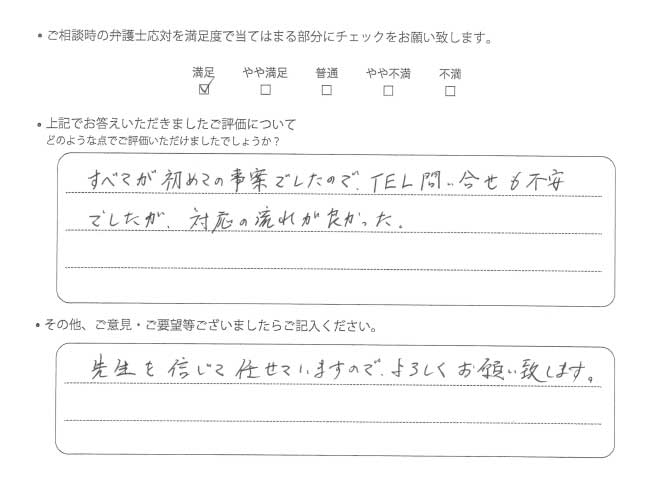 ・ご相談時の弁護士応対を満足度で当てはまる部分にチェックをお願い致します。
満足 やや満足 普通 やや不満 不満
☑ □ □ □ □
・上記でお答えいただきましたご評価について
どのような点でご評価いただけましたでしょうか？
すべてが初めての事案でしたので、TEL問い合せも不安
でしたが、対応の流れが良かった。
・その他、ご意見・ご要望等ございましたらご記入ください。
先生を信じて任せていますので、よろしくお願い致します。